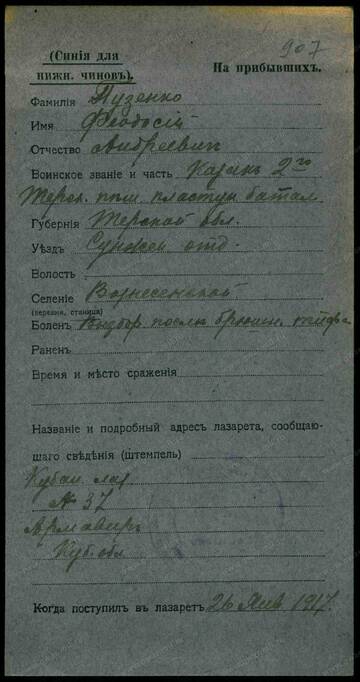 907
(Синія для
нижн. чиновъ).
На прибывшихъ.
Фамилія Лузенко
Имя Феодосій
Отчество Андреевич
Воинское званіе и часть Казакъ 2го
Терск. плст. пластун батал.
Губернія Терской обл.
Уѣздъ Сунжен отд.
Волость
Селеніе Вознесенской
(деревня, станица)
Боленъ Выздор после брюшн. тифа
Раненъ
Время и мѣсто сраженія
Названіе и подробный адресъ лазарета, сообщаю-
щаго свѣдѣнія (штемпель)
Кубан. лаз
№ 37
Армавир
Куб. обл
Когда поступилъ въ лазаретъ 26 Янв 1917.